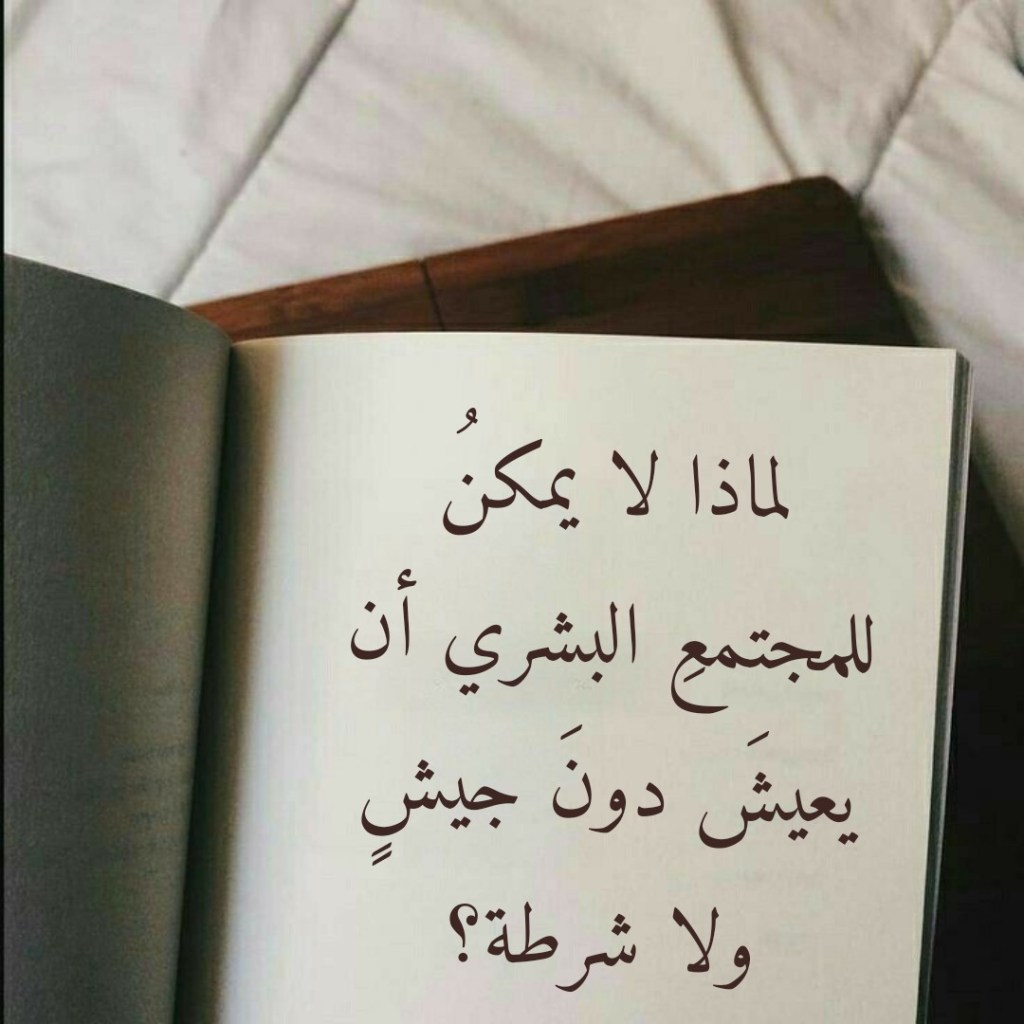 لماذا لا يمكنُ
للمجتمعِ البشري أن
يعيشَ دونَ جيشٍ
ولا شرطة؟